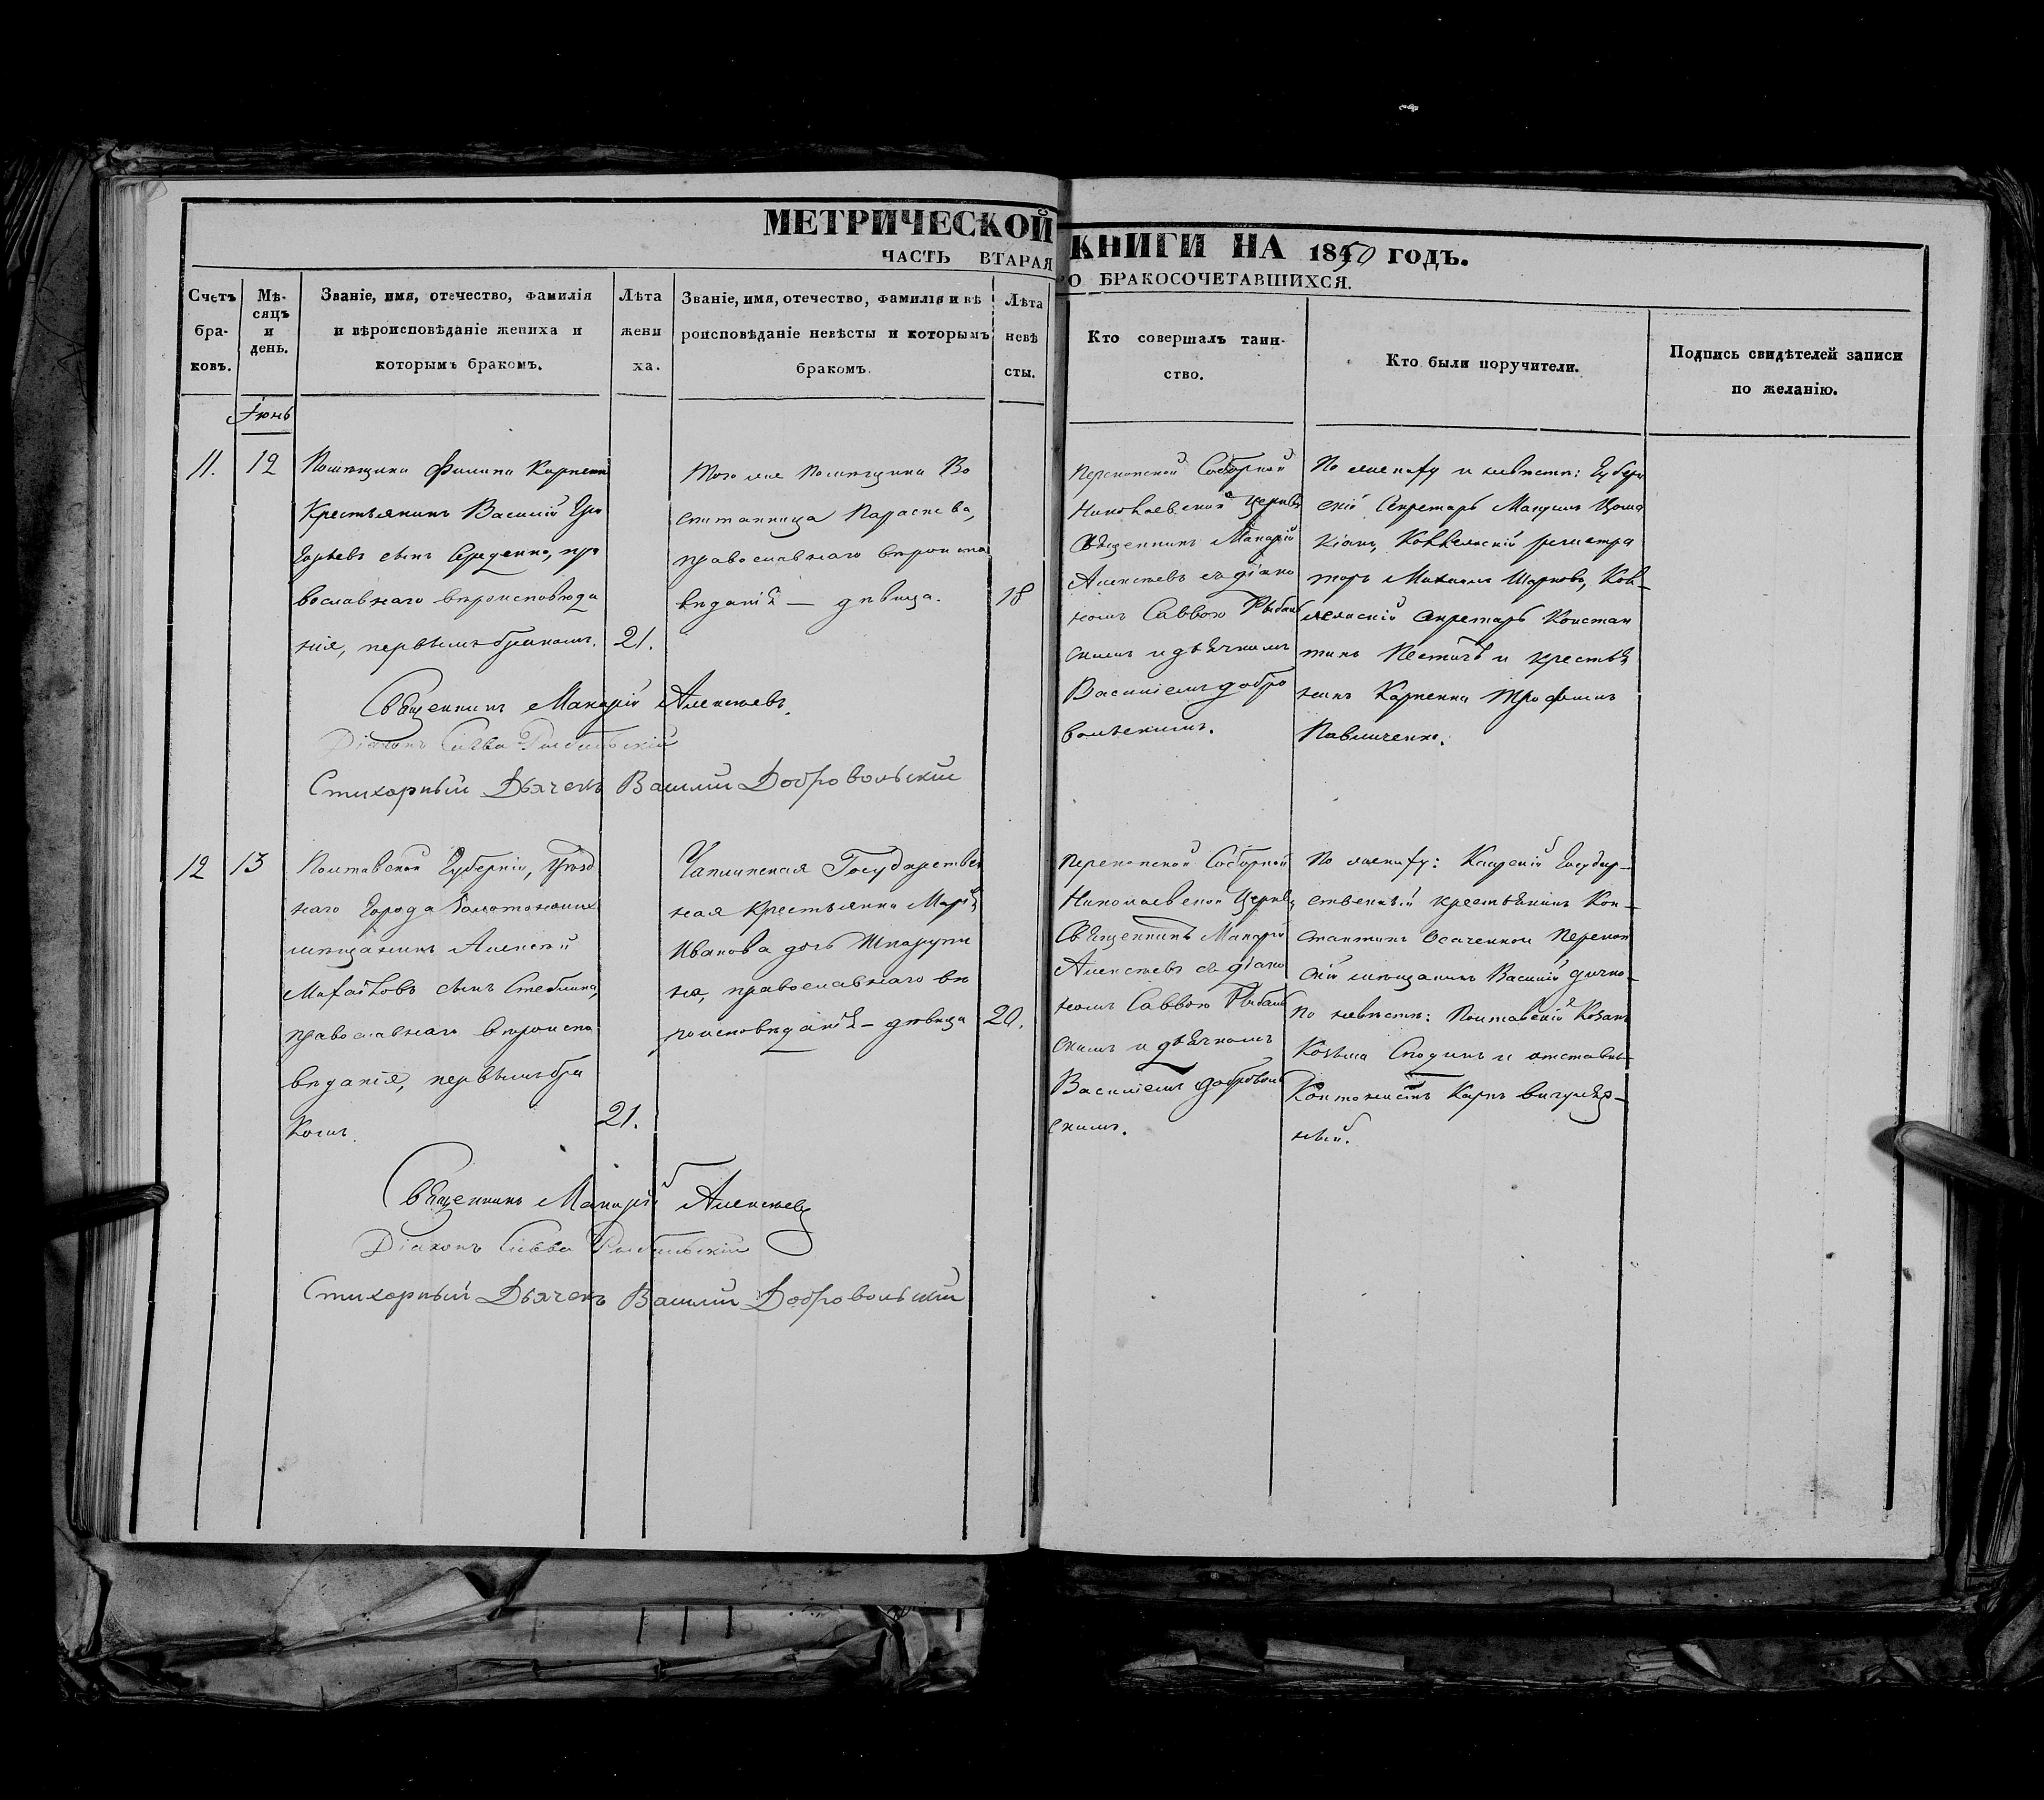 МЕТРИЧЕСКОЙ КНИГИ НА 1850 ГОДЪ.
ЧАСТЬ ВТАРАЯ О БРАКОСОЧЕТАВШИХСЯ.
Счетъ бра-ковъ.
Мѣ-сяцъ и день.
Званіе, имя, отечество, фамилія
и вѣроисповѣданіе жениха и
которымъ бракомъ.
Лѣта
жени
ха.
Званіе, имя, отечество, фамилія и вѣ
роисповѣданіе невѣсты и которымъ
бракомъ.
Лѣта
невѣ
сты.
Кто совершалъ таин-
ство.
Кто были поручители.
Подпись свидѣтелей записи
по желанію.
Іюнь
11. 12
Помѣщика Филипа
Крестьянинъ Василій Гри
горьевъ сынъ пра
вославнаго вѣроисповѣда
нія, первымъ бракомъ. 21.
Того же Помѣщика Во
спитанница Параскева,
православнаго вѣроиспо
вѣданія — дѣвица. 18
Перекопской Соборной
Николаевской Церкви
Священникъ Макарій
Алексѣевъ съ діако
номъ Саввою Рыбаль
скимъ и дьячкомъ
Василіемъ Добро
вольскимъ.
По жениху и невѣстѣ: Губерн
скій Секретарь
Коллежскій регистра
торъ Михаилъ Кол-
лежскій Секретарь Констан
тинъ и крестья
нинъ Трофимъ
Павличенко.
Священникъ Макарій Алексѣевъ.
Діаконъ Савва Рыбальскій
Стихарный Дьячекъ Василій Добровольскій
12 13
Полтавской Губерніи, Уѣзд
наго Города Золотоноши
мѣщанинъ Алексѣй
Михайловъ сынъ
православнаго вѣроиспо
вѣданія, первымъ бра
комъ. 21.
Чаплинская Государствен
ная Крестьянка Марія
Иванова дочь
православнаго вѣ
роисповѣданія — дѣвица 20.
Перекопской Соборной
Николаевской Церкви
Священникъ Макарій
Алексѣевъ съ діако
номъ Саввою Рыбаль
скимъ и дьячкомъ
Василіемъ Добровол
скимъ.
По жениху: Государ-
ственный крестьянинъ Кон-
стантинъ Перекоп
скій мѣщанинъ Василій
По невѣстѣ: Полтавскій Козакъ
Козьма и отставн
Карпъ
ный.
Священникъ Макарій Алексѣевъ
Діаконъ Савва Рыбальскій
Стихарный Дьячекъ Василій Добровольскій